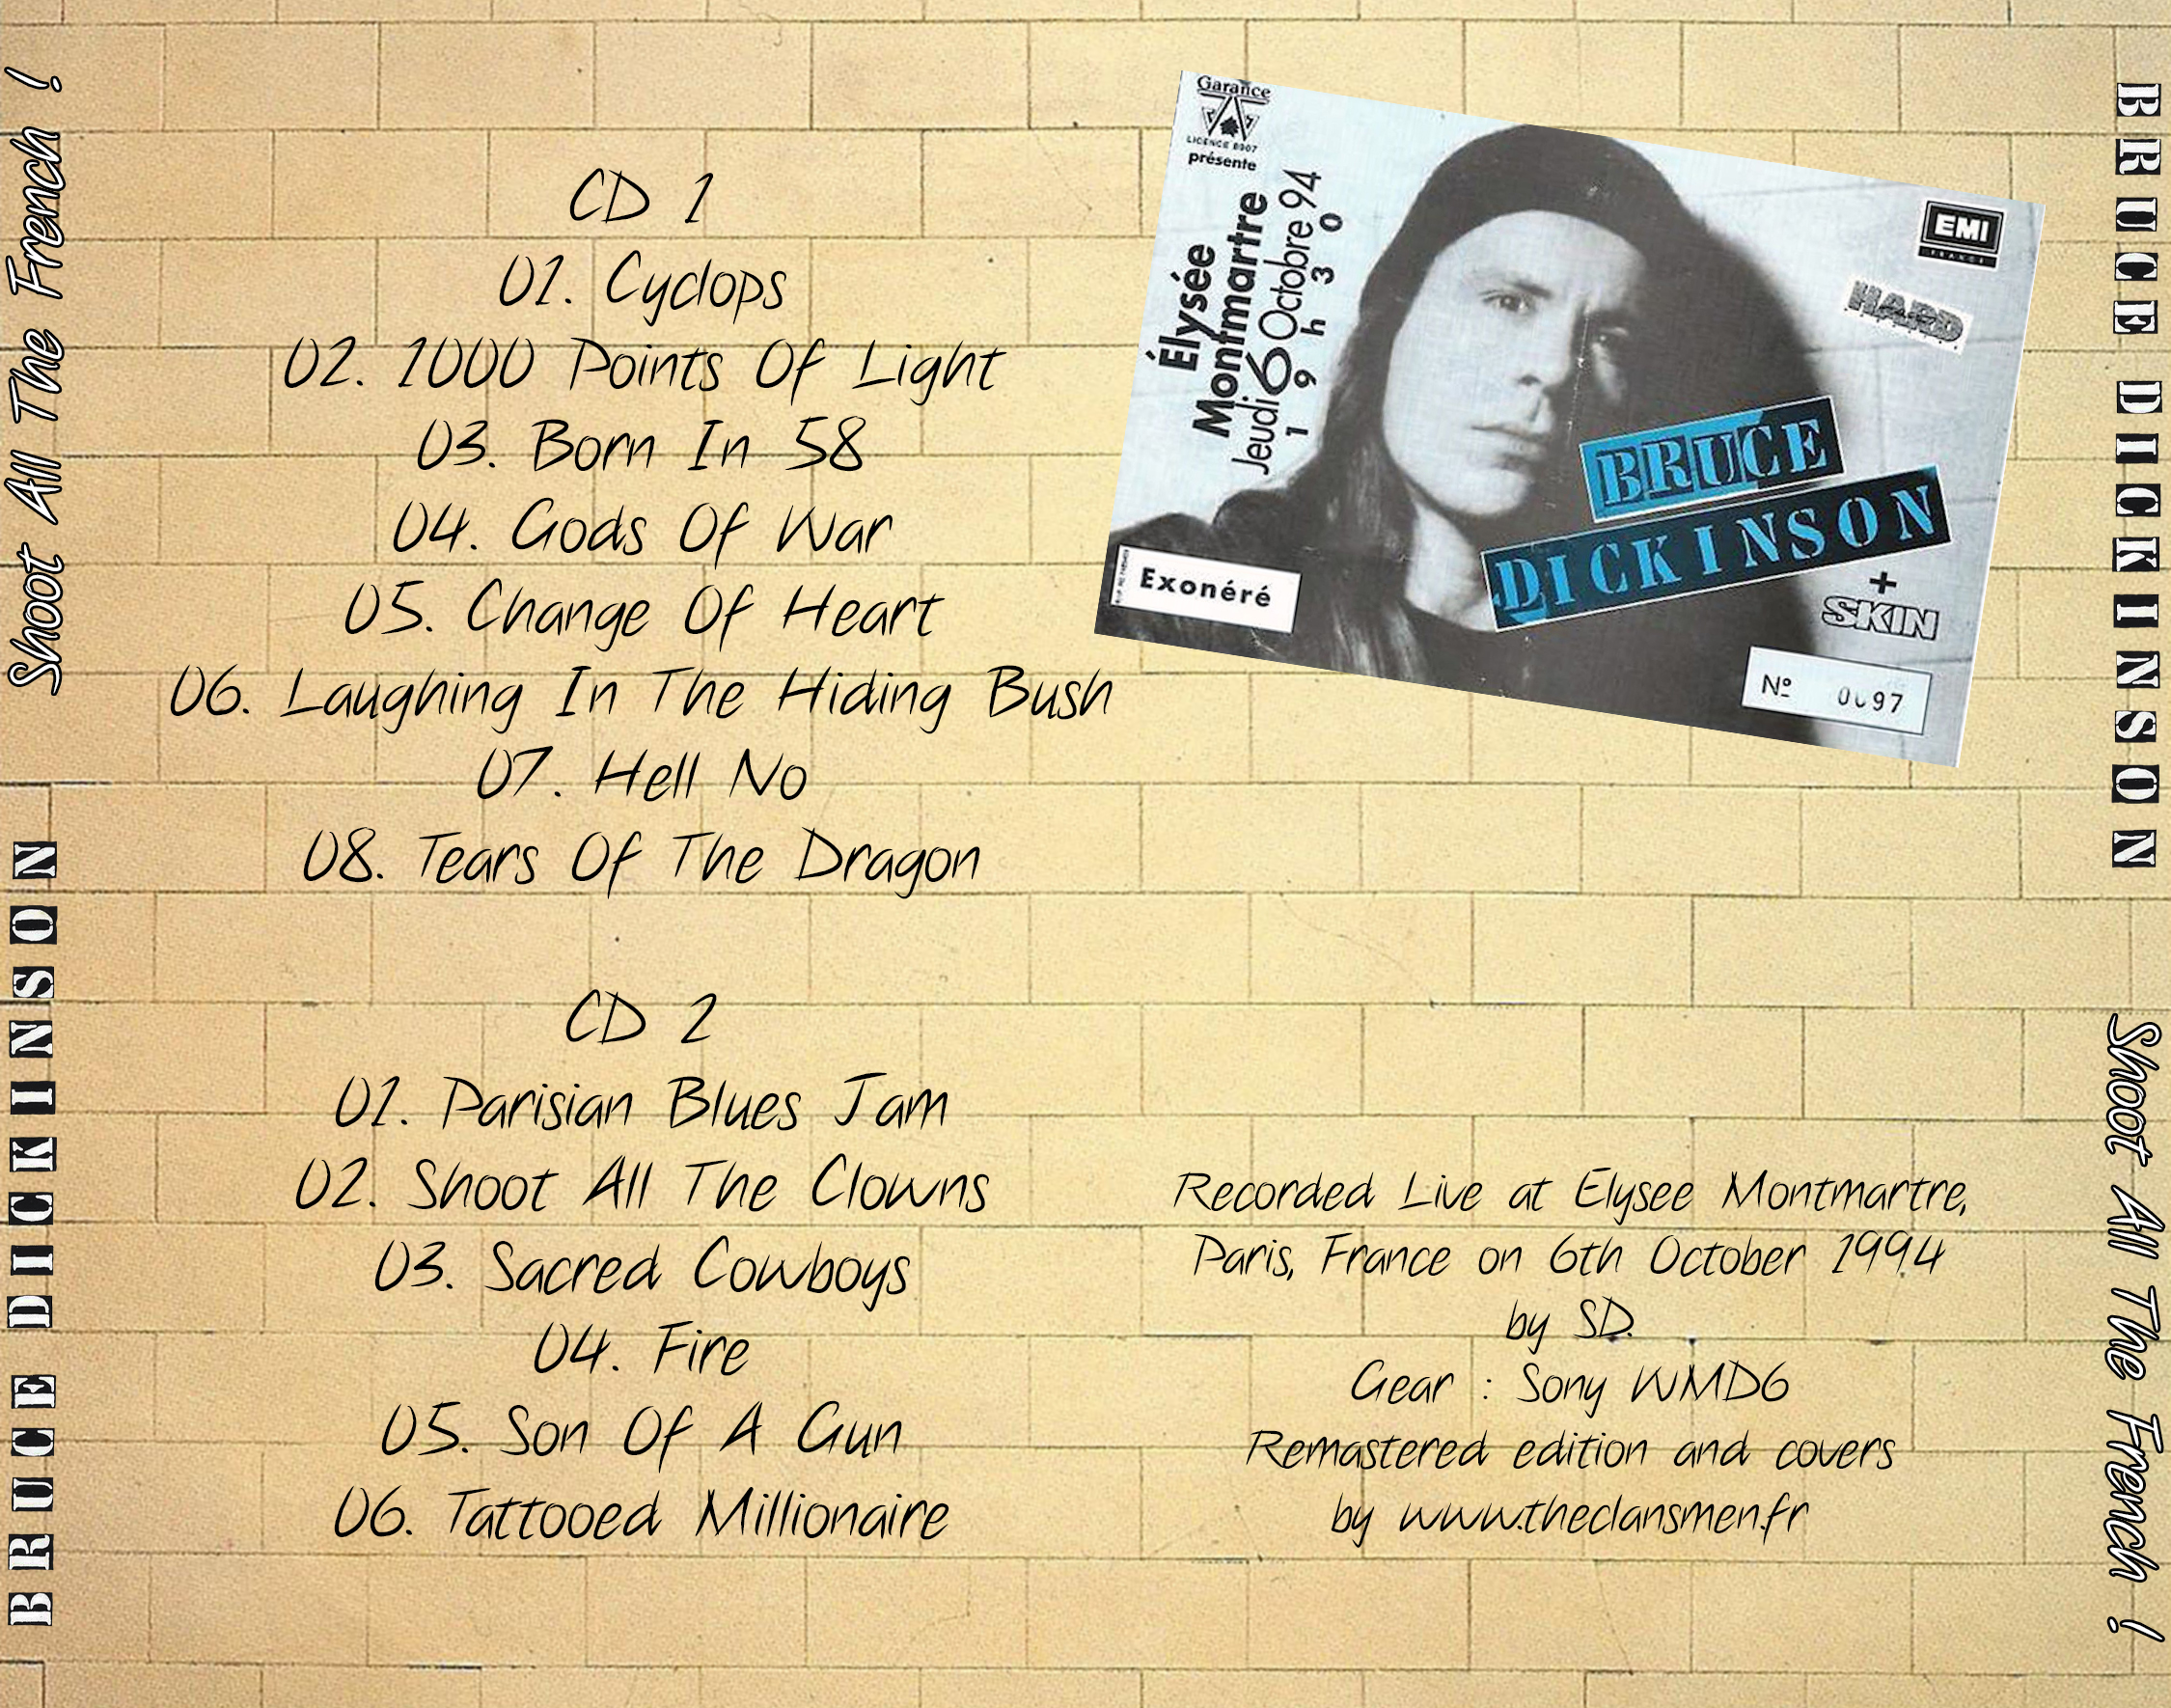 Shoot All The French !
BRUCE DICKINSON
CD 1
01. Cyclops
02. 1000 Points Of Light
03. Born In 58
04. Gods Of War
05. Change Of Heart
06. Laughing In The Hiding Bush
07. Hell No
08. Tears Of The Dragon
CD 2
01. Parisian Blues Jam
02. Shoot All The Clowns
03. Sacred Cowboys
04. Fire
05. Son Of A Gun
06. Tattooed Millionaire
Garance
LICENCE 8907
présente
Élysée
Montmartre
Jeudi 6 Octobre 94
19h30
EMI
FRANCE
HARD
BRUCE
DICKINSON
+
SKIN
Exonéré
Nº 0097
Recorded Live at Elysee Montmartre,
Paris, France on 6th October 1994
by SD.
Gear : Sony WMD6
Remastered edition and covers
by www.theclansmen.fr
BRUCE DICKINSON
Shoot All The French !